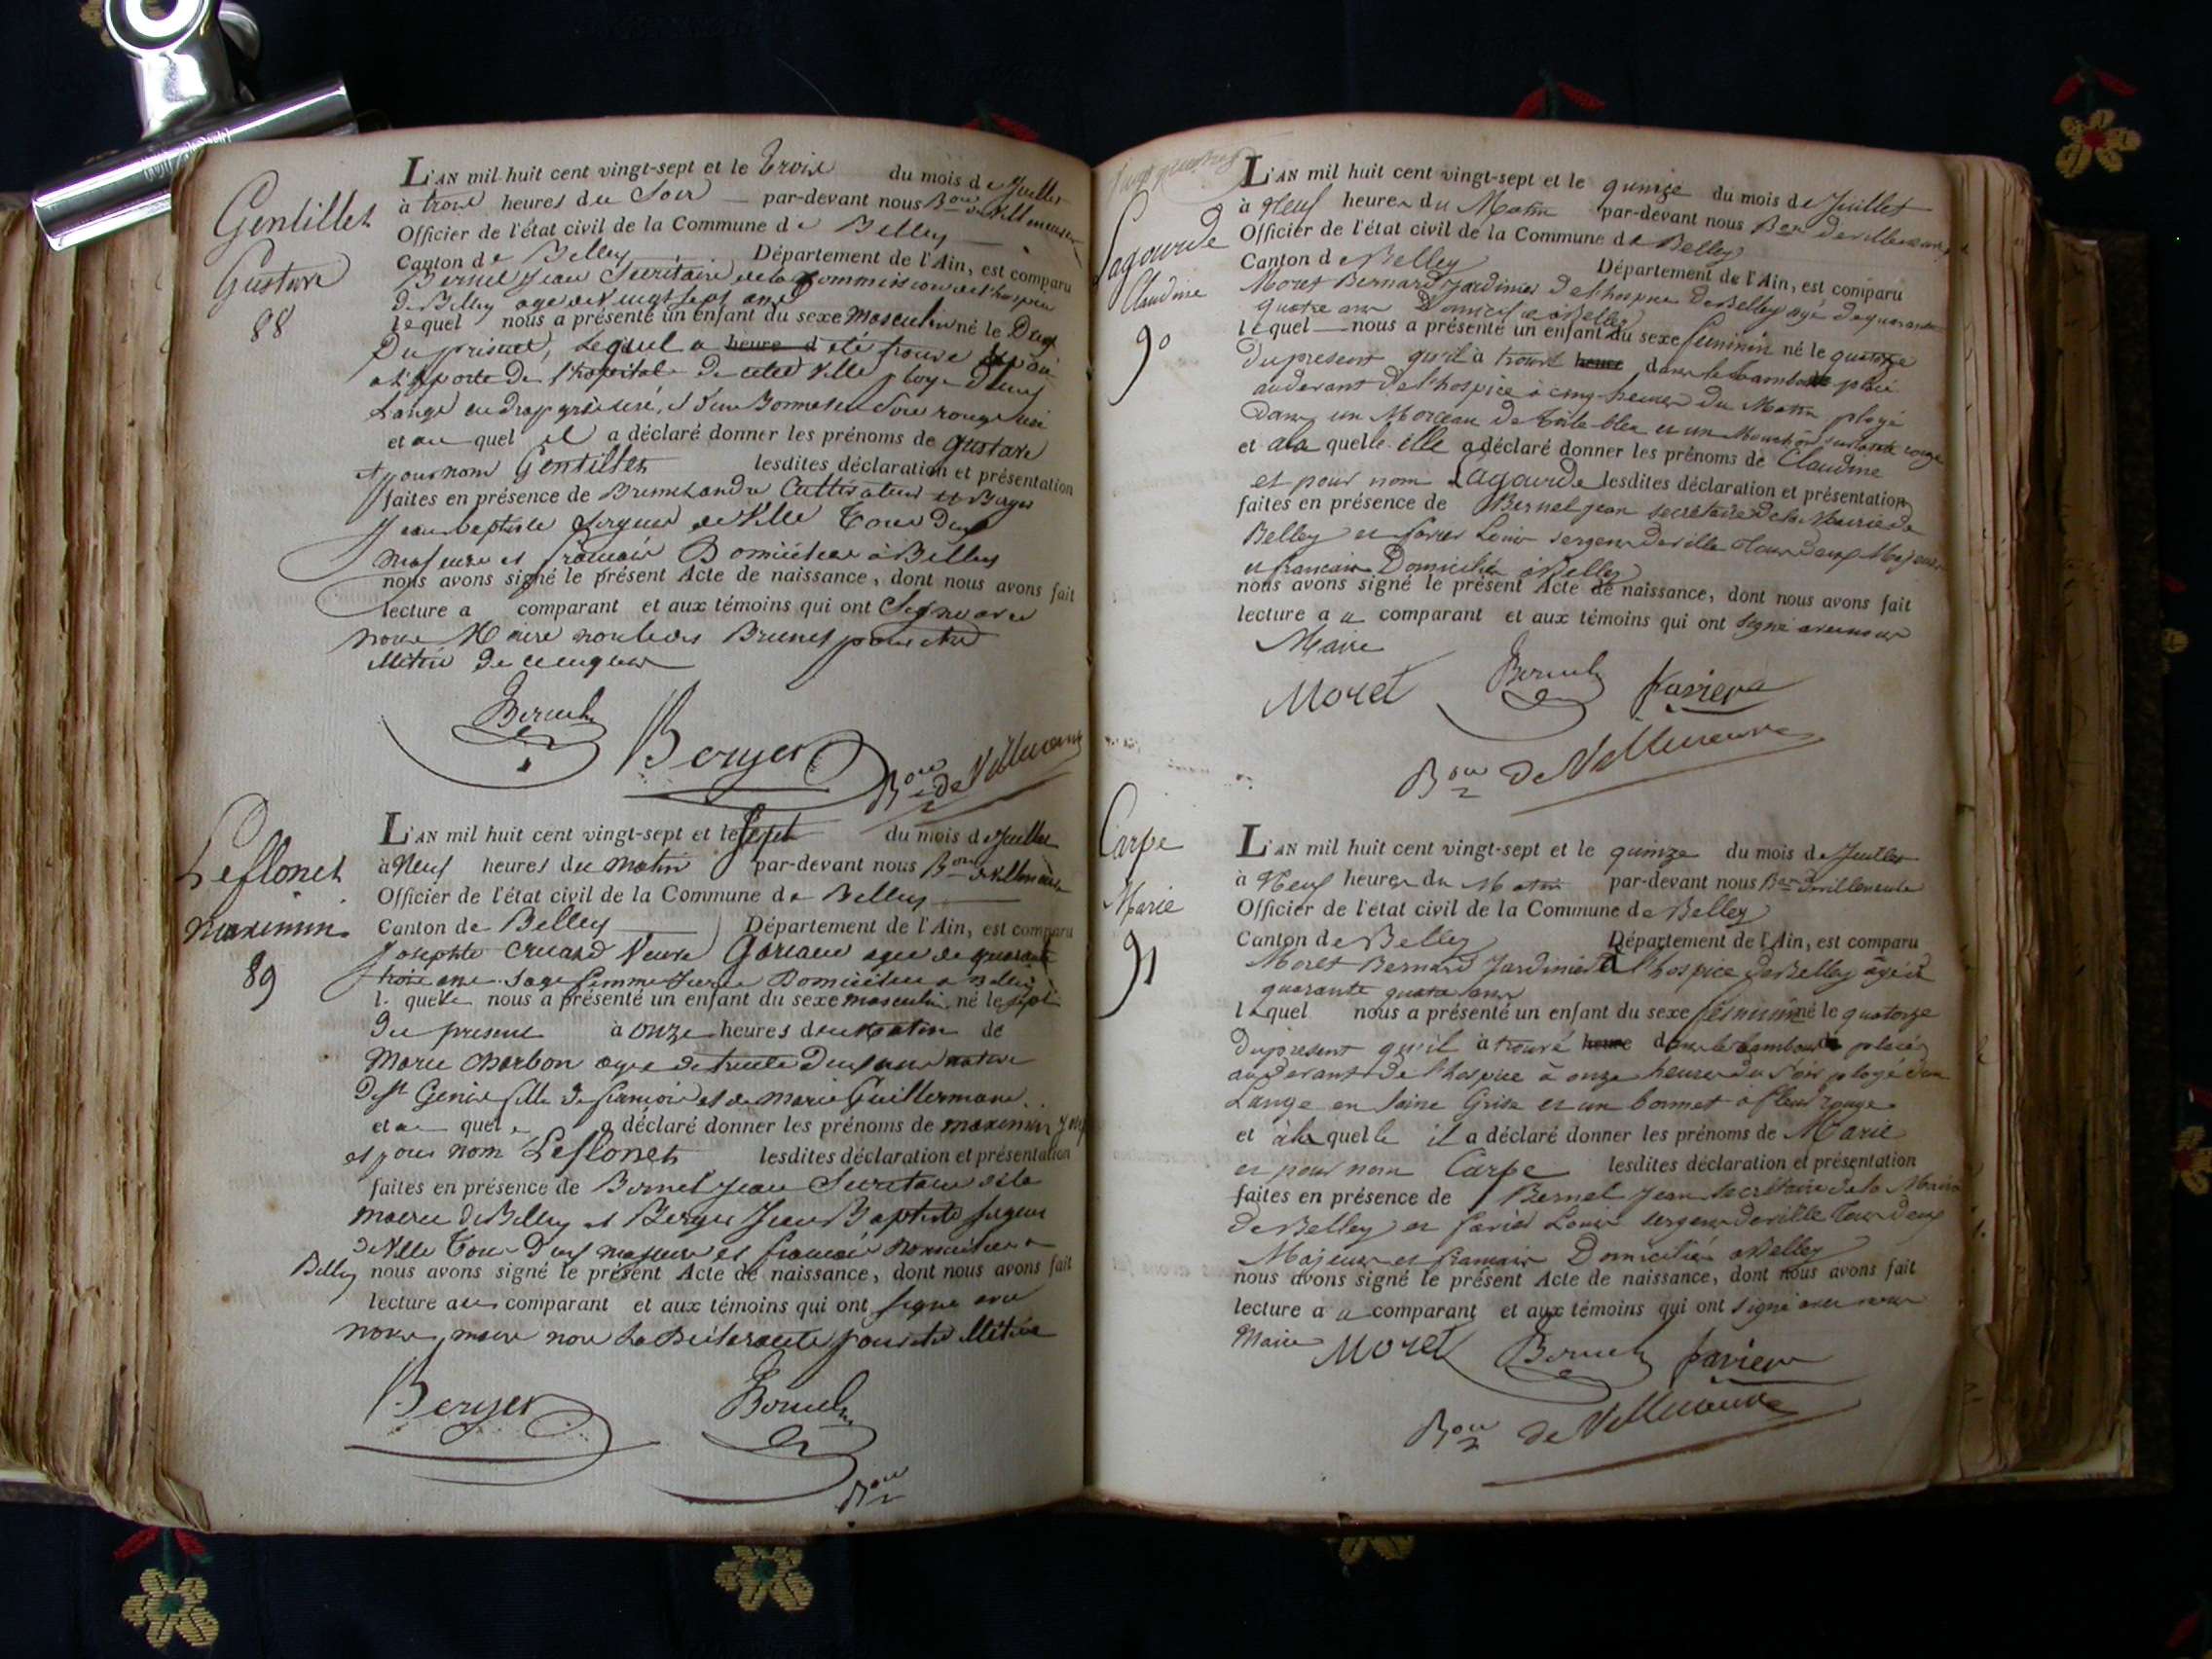 Gentillet
Gustave
88
L'AN mil huit cent vingt-sept et le trois du mois de Juillet
à trois heures du Soir par-devant nous Bon de Villeneuve
Officier de l'état civil de la Commune de Belley
Canton de Belley Département de l'Ain, est comparu
Bernel Jean Secrétaire de la Commission de l'hospice
de Belley age de vingt sept ans
lequel nous a présenté un enfant du sexe masculin né le Deux
Du présent, Lequel a heure d été trouvé
a la porte de l'hospital de cette Ville ploye Dans
Lange en drap gris usé, et d'un Bonnet en Soie rouge usé
et au quel il a déclaré donner les prénoms de Gustave
et pour nom Gentillet lesdites déclaration et présentation
faites en présence de Cultivateur et Berger
Jean baptiste sergent de Ville Tous Deux
majeurs et français Domiciliés à Belley
nous avons signé le présent Acte de naissance, dont nous avons fait
lecture a comparant et aux témoins qui ont Signé avec
nous Maire non ledit pour être
illitéré de ce enquis
Bernel
Berger
Bon de Villeneuve
Leflonet
maximin
89
L'AN mil huit cent vingt-sept et le Sept du mois de Juillet
à Neuf heures du matin par-devant nous Bon de Villeneuve
Officier de l'état civil de la Commune de Belley
Canton de Belley Département de l'Ain, est comparu
Josephte Veuve agee de quarante
trois ans Sage femme Jurée Domiciliée a Belley
l quelle nous a présenté un enfant du sexe masculin né le sept
du présent à onze heures du matin de
Marie Charbon agée de trente Deux ans native
De St Genis fille de françois et de marie Guillermane
et au quel e a déclaré donner les prénoms de maximin
et pour nom Leflonet lesdites déclaration et présentation
faites en présence de Bernel Jean Secretaire de la
mairie de Belley et Berger Jean Baptiste sergent
de Ville Tous Deux majeurs et français Domiciliés a
Belley nous avons signé le présent Acte de naissance, dont nous avons fait
lecture aux comparant et aux témoins qui ont signé avec
nous maire non La Déclarante pour être illitérée
Berger
Bernel
Bon
Lagourde
Claudine
90
L'AN mil huit cent vingt-sept et le quinze du mois de Juillet
à Neuf heures du Matin par-devant nous Bon de villeneuve
Officier de l'état civil de la Commune de Belley
Canton de Belley Département de l'Ain, est comparu
Moret Bernard Jardinier de l'hospice de Belley agé de quarante
quatre ans Domicilié à Belley
lequel nous a présenté un enfant du sexe feminin né le quatorze
du present qu'il à trouvé heure dans le tambour placé
au devant de l'hospice à cinq heures du Matin ployé
Dans un Morceau de toile bleu et un Mouchoir rouge
et a la quelle elle a déclaré donner les prénoms de Claudine
et pour nom Lagourde lesdites déclaration et présentation
faites en présence de Bernel jean secretaire de la Mairie de
Belley et favier Louis sergent de ville tous deux Majeurs
et français Domiciliés à Belley
nous avons signé le présent Acte de naissance, dont nous avons fait
lecture a u comparant et aux témoins qui ont signé avec nous
Maire
Moret
Bernel
favier
Bon de Villeneuve
Carpe
Marie
91
L'AN mil huit cent vingt-sept et le quinze du mois de Juillet
à Neuf heures du Matin par-devant nous Bon de villeneuve
Officier de l'état civil de la Commune de Belley
Canton de Belley Département de l'Ain, est comparu
Moret Bernard Jardinier à l'hospice de Belley âgé de
quarante quatre ans
lequel nous a présenté un enfant du sexe féminin né le quatorze
du present qu'il à trouvé heure dans le tambour placé
au devant de l'hospice à onze heures du soir ployé d'un
Lange en laine Grise et un bonnet à fleur rouge
et à la quelle il a déclaré donner les prénoms de Marie
et pour nom Carpe lesdites déclaration et présentation
faites en présence de Bernel Jean secrétaire de la Mairie
de Belley et favier Louis sergent de ville tous deux
Majeurs et français Domiciliés à Belley
nous avons signé le présent Acte de naissance, dont nous avons fait
lecture a u comparant et aux témoins qui ont signé avec nous
Maire
Moret
Bernel
favier
Bon de Villeneuve